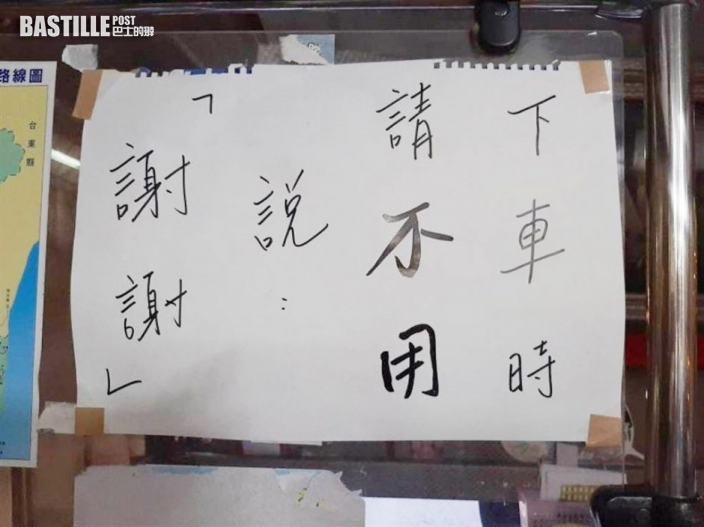 BASTILLE POST
巴士的報
路線圖
台東縣
下車時
請不用
說：
「謝謝」